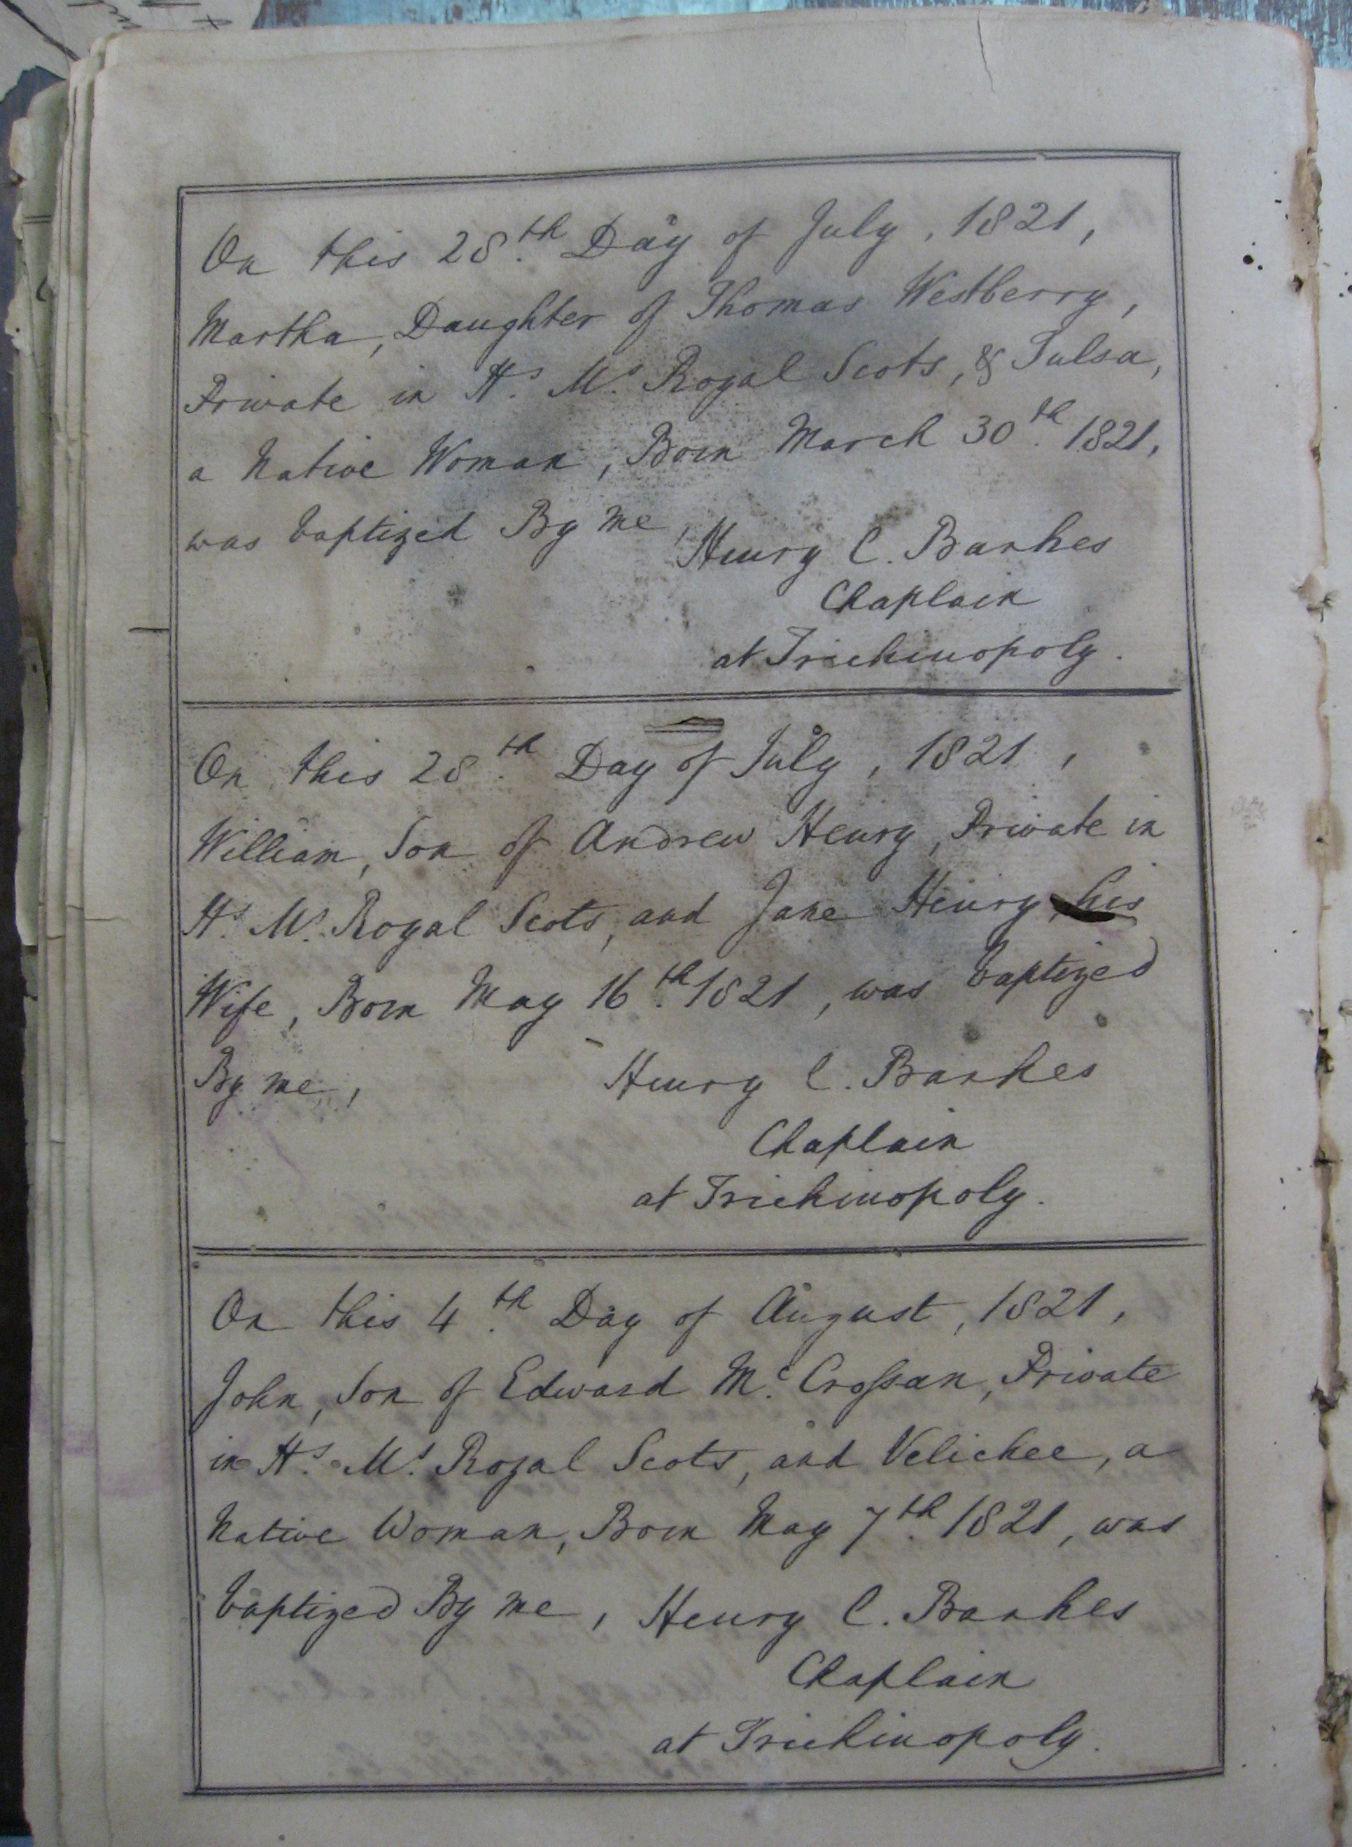 On this 28th Day of July, 1821,
Martha, Daughter of Thomas Westberry,
Private in H.s M.s Royal Scots, & Tulsa,
a Native Woman, Born March 30th 1821,
was baptized By me,
Henry C. Bankes
Chaplain
at Trichinopoly.
On this 28th Day of July, 1821,
William, Son of Andrew Henry, Private in
H.s M.s Royal Scots, and Jane Henry his
Wife, Born May 16th 1821, was baptized
By me, Henry C. Bankes
Chaplain
at Trichinopoly.
On this 4th Day of August, 1821,
John, Son of Edward Mc Crossan, Private
in H.s M.s Royal Scots, and Velichee, a
Native Woman, Born May 7th 1821, was
baptized By me, Henry C. Bankes
Chaplain
at Trichinopoly.